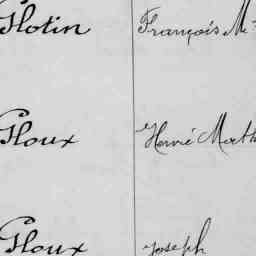 Glotin François M
Gloux Hervé Math
Gloux Joseph